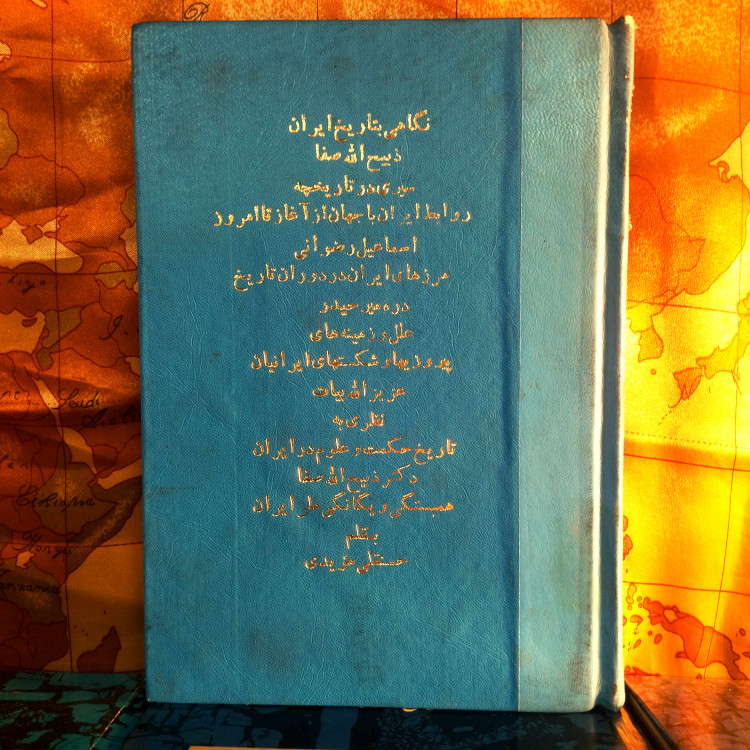 نگاهی بتاریخ ایران
ذبیح الله صفا
سیری در تاریخچه
روابط ایران با جهان از آغاز تا امروز
اسماعیل رضوانی
مرزهای ایران در دوران تاریخ
دره میر حیدر
علل و زمینه های
پیروزیها و شکستهای ایرانیان
عزیز الله بیات
نظری به
تاریخ حکمت و علوم در ایران
دکتر ذبیح الله صفا
همبستگی و یگانگی ملی ایران
بقلم
حسنقلی مؤیدی
Saudi
Ethiopia